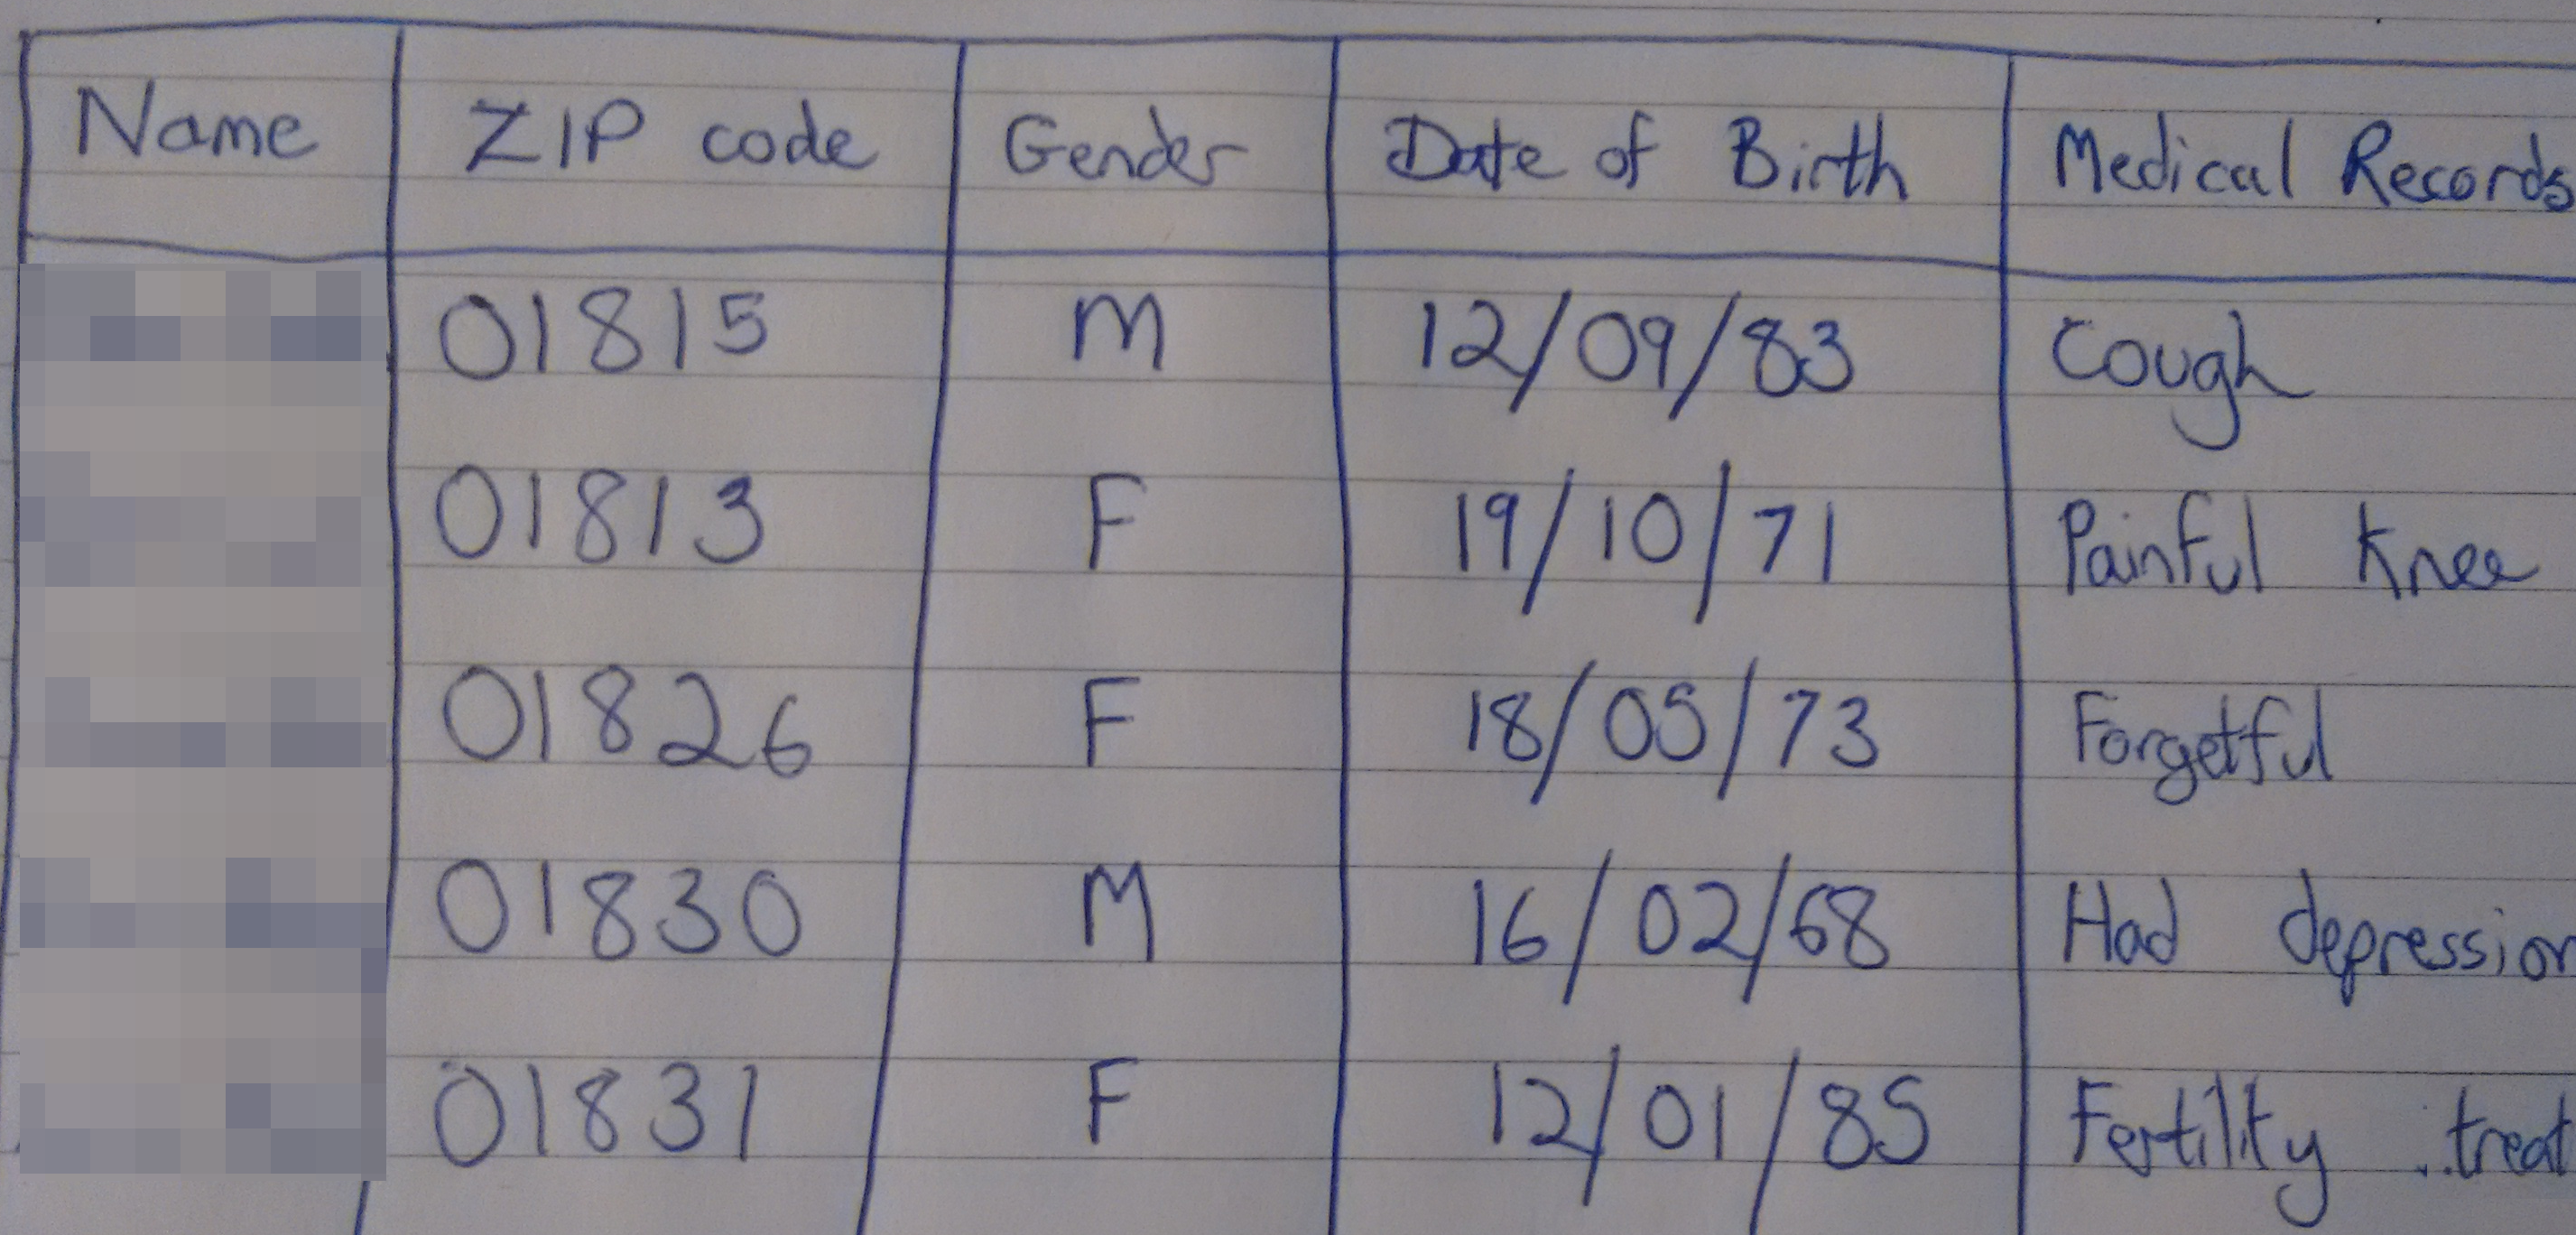 Name ZIP code Gender Date of Birth Medical Records
01815 M 12/09/83 Cough
01813 F 19/10/71 Painful Knee
01826 F 18/05/73 Forgetful
01830 M 16/02/68 Had depression
01831 F 12/01/85 Fertility treat